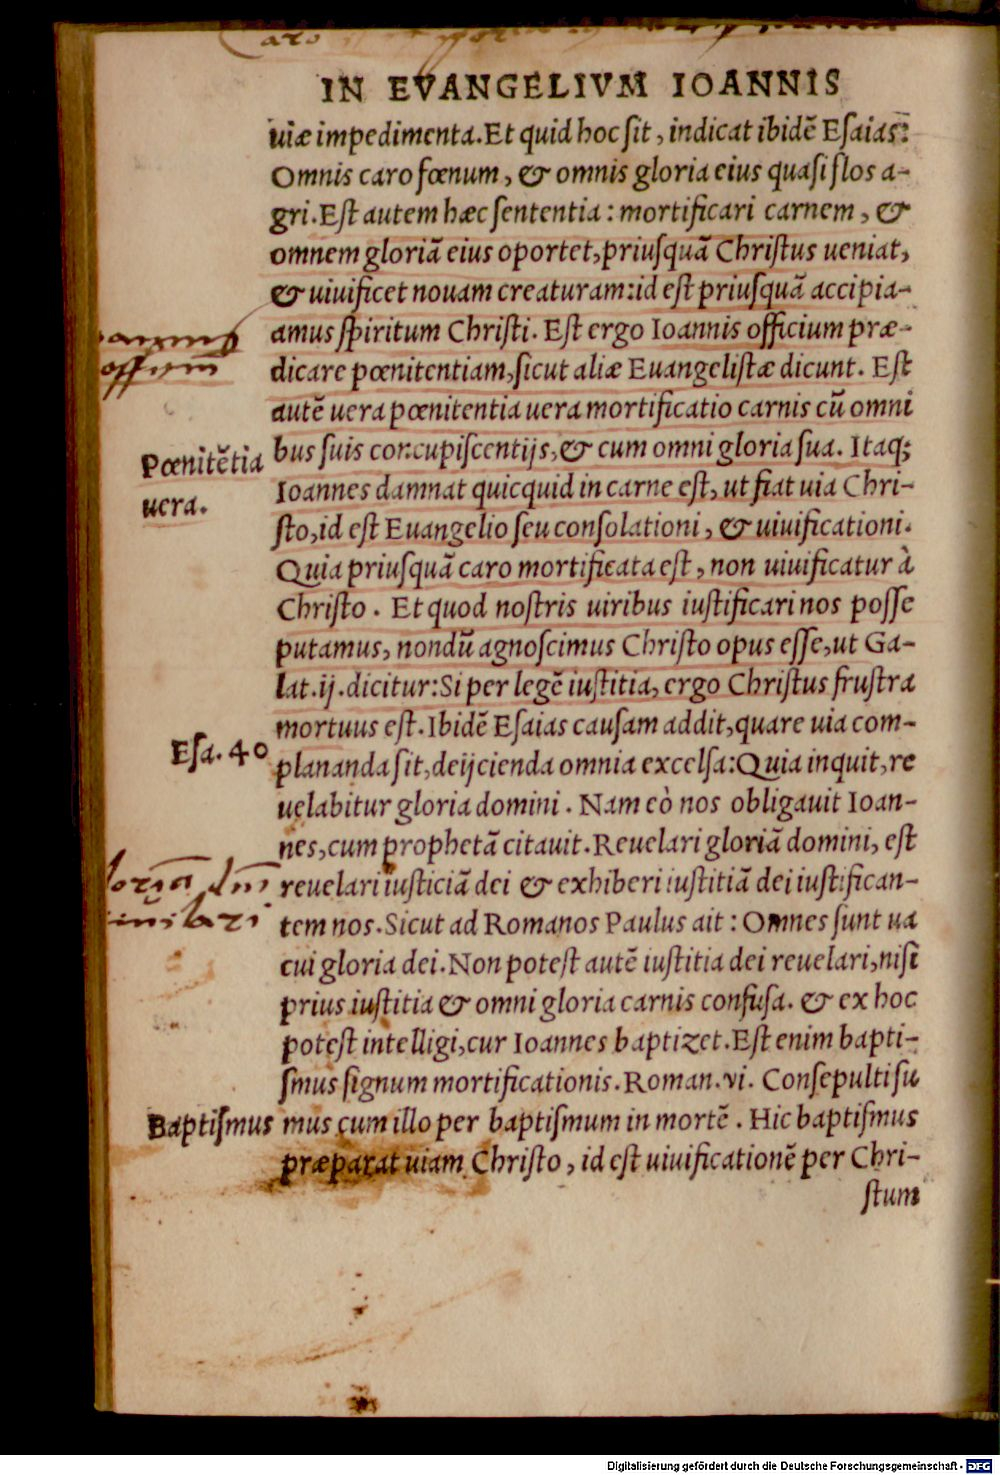 IN EVANGELIVM IOANNIS
uiæ impedimenta. Et quid hoc sit, indicat ibidē Esaias:
Omnis caro fœnum, & omnis gloria eius quasi flos a-
gri. Est autem hæc sententia: mortificari carnem, &
omnem gloriā eius oportet, priusquā Christus ueniat,
& uiuificet nouam creaturam: id est priusquā accipia-
amus spiritum Christi. Est ergo Ioannis officium præ-
officium
dicare pœnitentiam, sicut aliæ Euangelistæ dicunt. Est
autē uera pœnitentia uera mortificatio carnis cū omni
Pœnitētia
uera.
bus suis concupiscentijs, & cum omni gloria sua. Itaq;
Ioannes damnat quicquid in carne est, ut fiat uia Chri-
sto, id est Euangelio seu consolationi, & uiuificationi.
Quia priusquā caro mortificata est, non uiuificatur à
Christo. Et quod nostris uiribus iustificari nos posse
putamus, nondū agnoscimus Christo opus esse, ut Ga-
lat. ij. dicitur: Si per legē iustitia, ergo Christus frustra
mortuus est. Ibidē Esaias causam addit, quare uia com-
Esa. 40
plananda sit, deijcienda omnia excelsa: Quia inquit, re
uelabitur gloria domini. Nam eò nos obligauit Ioan-
nes, cum prophetā citauit. Reuelari gloriā domini, est
reuelari iusticiā dei & exhiberi iustitiā dei iustifican-
tem nos. Sicut ad Romanos Paulus ait: Omnes sunt ua
cui gloria dei. Non potest autē iustitia dei reuelari, nisi
prius iustitia & omni gloria carnis confusa. & ex hoc
potest intelligi, cur Ioannes baptizet. Est enim bapti-
smus signum mortificationis. Roman. vi. Consepulti su
Baptismus
mus cum illo per baptismum in mortē. Hic baptismus
præparat uiam Christo, id est uiuificationē per Chri-
stum
Digitalisierung gefördert durch die Deutsche Forschungsgemeinschaft - DFG